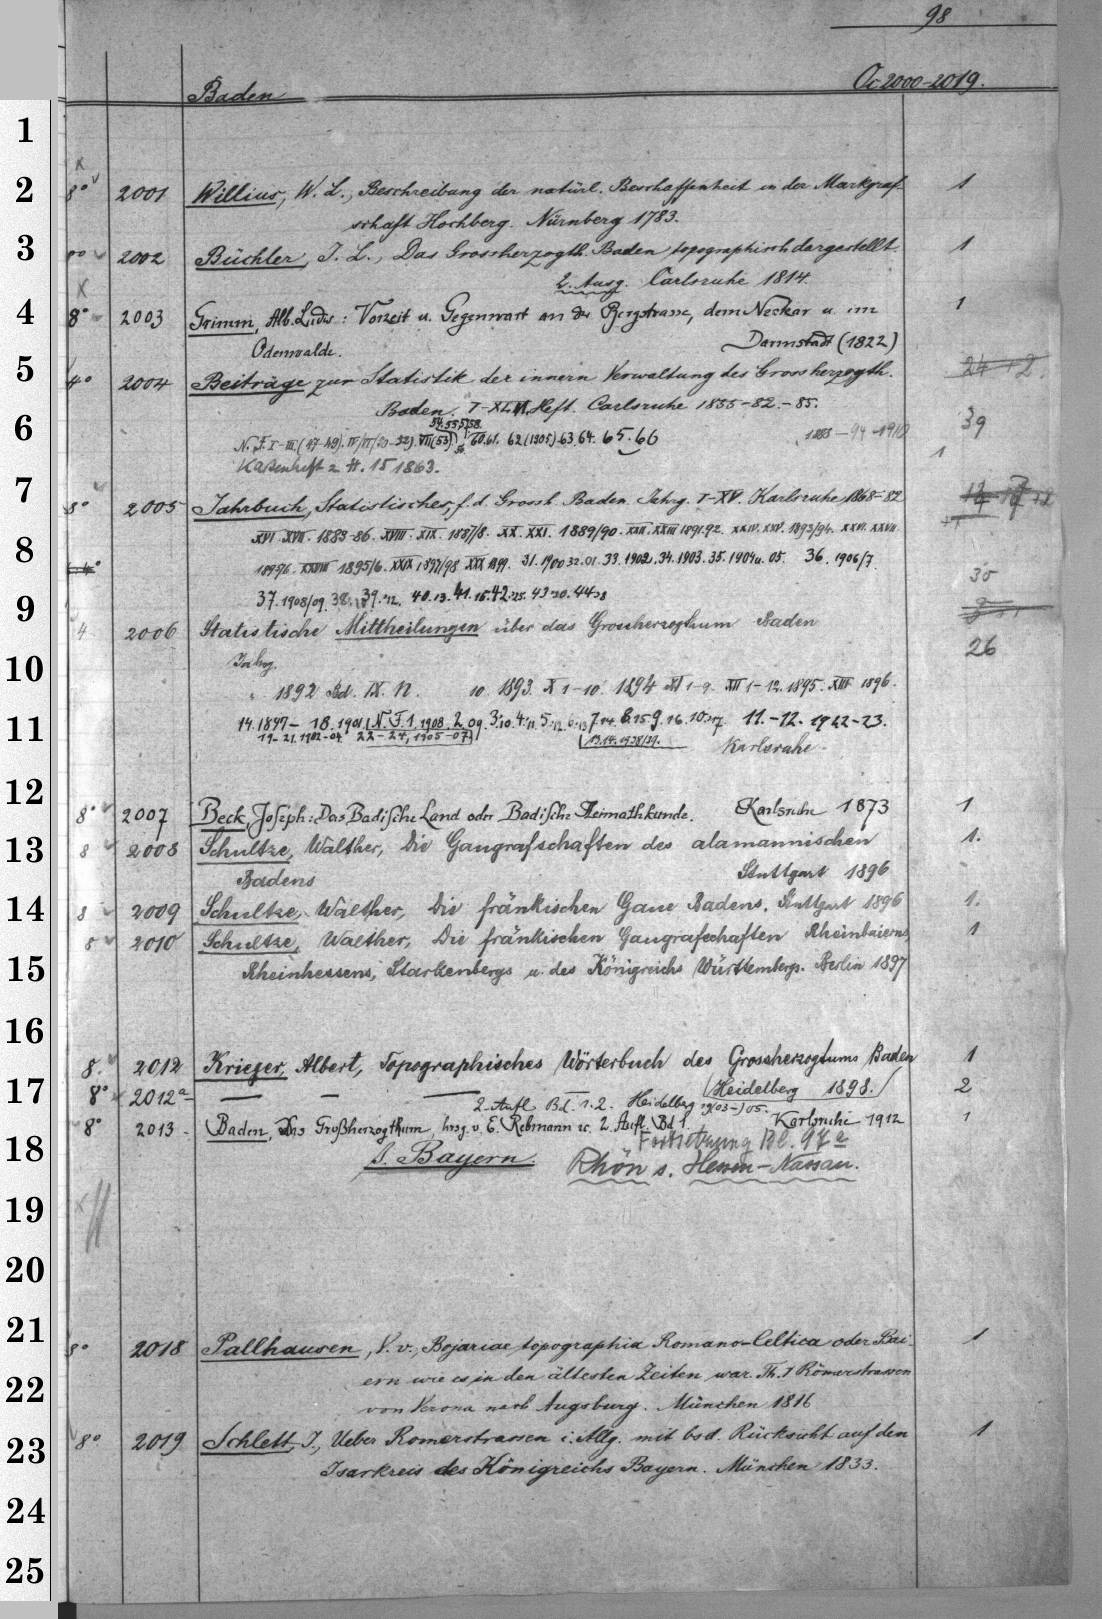 98
Baden Oc 2000-2019.
1
2 8° 2001 Willius, W. L., Beschreibung der natürl. Beschaffenheit in der Markgraf- 1
schaft Hochberg. Nürnberg 1783.
3 2002 Büchler, J. L., Das Grossherzogth. Baden topographisch dargestellt 1
2. Ausg. Carlsruhe 1814.
4 8° 2003 Grimm, Alb. Ludw.: Vorzeit u. Gegenwart an der Bergstrasse, dem Neckar u. im 1
Odenwalde. Darmstadt (1822)
5 4° 2004 Beiträge zur Statistik der innern Verwaltung des Grossherzogth. 24 + 2.
Baden. I-XLVI. Heft. Carlsruhe 1855-82.-85. 39
6 54.55.57.58.
N. F. I-III (47-49). VII (53) 60.61. 62 (1905) 63 64. 65. 66 1
2 H. 15 1863.
7 8° 2005 Jahrbuch, Statistisches, f. d. Grossh. Baden. Jahrg. I-XV. Karlsruhe 1868-82
XVI. XVII. 1883-86. XVIII. XIX. 1887/8. XX. XXI. 1889/90. XXII. XXIII 1891.92. XXIV. XXV. 1893/94. XXVI. XXVII
8 4° XXVIII 1895/6. XXIX 1897/98 XXX 1899. 31. 1900 32. 01. 33. 1902. 34. 1903. 35. 1904 u. 05. 36. 1906/7. 30
37. 1908/09. 38. 39. 12. 40. 13. 41. 15. 42. 25. 43 20. 44
9 4 2006 Statistische Mittheilungen über das Grossherzogthum Baden 26
10 Jahrg.
1892 Bd. IX. n. 10. 1893. X 1-10. 1894 XI 1-9. XII 1-12. 1895. XIII 1896.
11 14. 1897- 18. 1901 N. F. 1. 1908. 2. 09. 3. 10. 4. 11. 5. 12. 6. 13 7. 14. 8. 15 9. 16. 10. 17. 11.-12. 1922-23.
19-21. 1902-04 22-24, 1905-07 13.14. 1938/39. Karlsruhe.
12 8° 2007 Beck, Joseph: Das Badische Land oder Badische Heimathkunde. Karlsruhe 1873 1
13 8 2008 Schultze, Walther, Die Gaugrafschaften des alamannischen 1.
Badens Stuttgart 1896
14 8 2009 Schultze, Walther, Die fränkischen Gaue Badens. Stuttgart 1896 1.
8 2010 Schultze, Walther, Die fränkischen Gaugrafschaften Rheinbaierns, 1
15 Rheinhessens, Starkenbergs u. des Königreichs Württembergs. Berlin 1897
16
8. 2012 Krieger, Albert, Topographisches Wörterbuch des Grossherzogtums Baden 1
Heidelberg 1898.
17 8° 2012a — — — 2. Aufl. Bd. 1. 2. Heidelberg 19(03-)05. 2
8° 2013 Baden, Das Großherzogthum, hrsg. v. E. Rebmann u. 2. Aufl. Bd 1. Karlsruhe 1912 1
Fortsetzung Bl. 97a
18 s. Bayern. Rhön s. Hessen-Nassau.
19
20
21 8° 2018 Pallhausen, V. v., Bojariae topographia Romano-Celtica oder Bai- 1
22 ern wie es in den ältesten Zeiten war. Th. I Römerstrassen
von Verona nach Augsburg. München 1816
23 8° 2019 Schlett, J., Ueber Romerstrassen i. Allg. mit bsd. Rücksicht auf den 1
Isarkreis des Königreichs Bayern. München 1833.
24
25